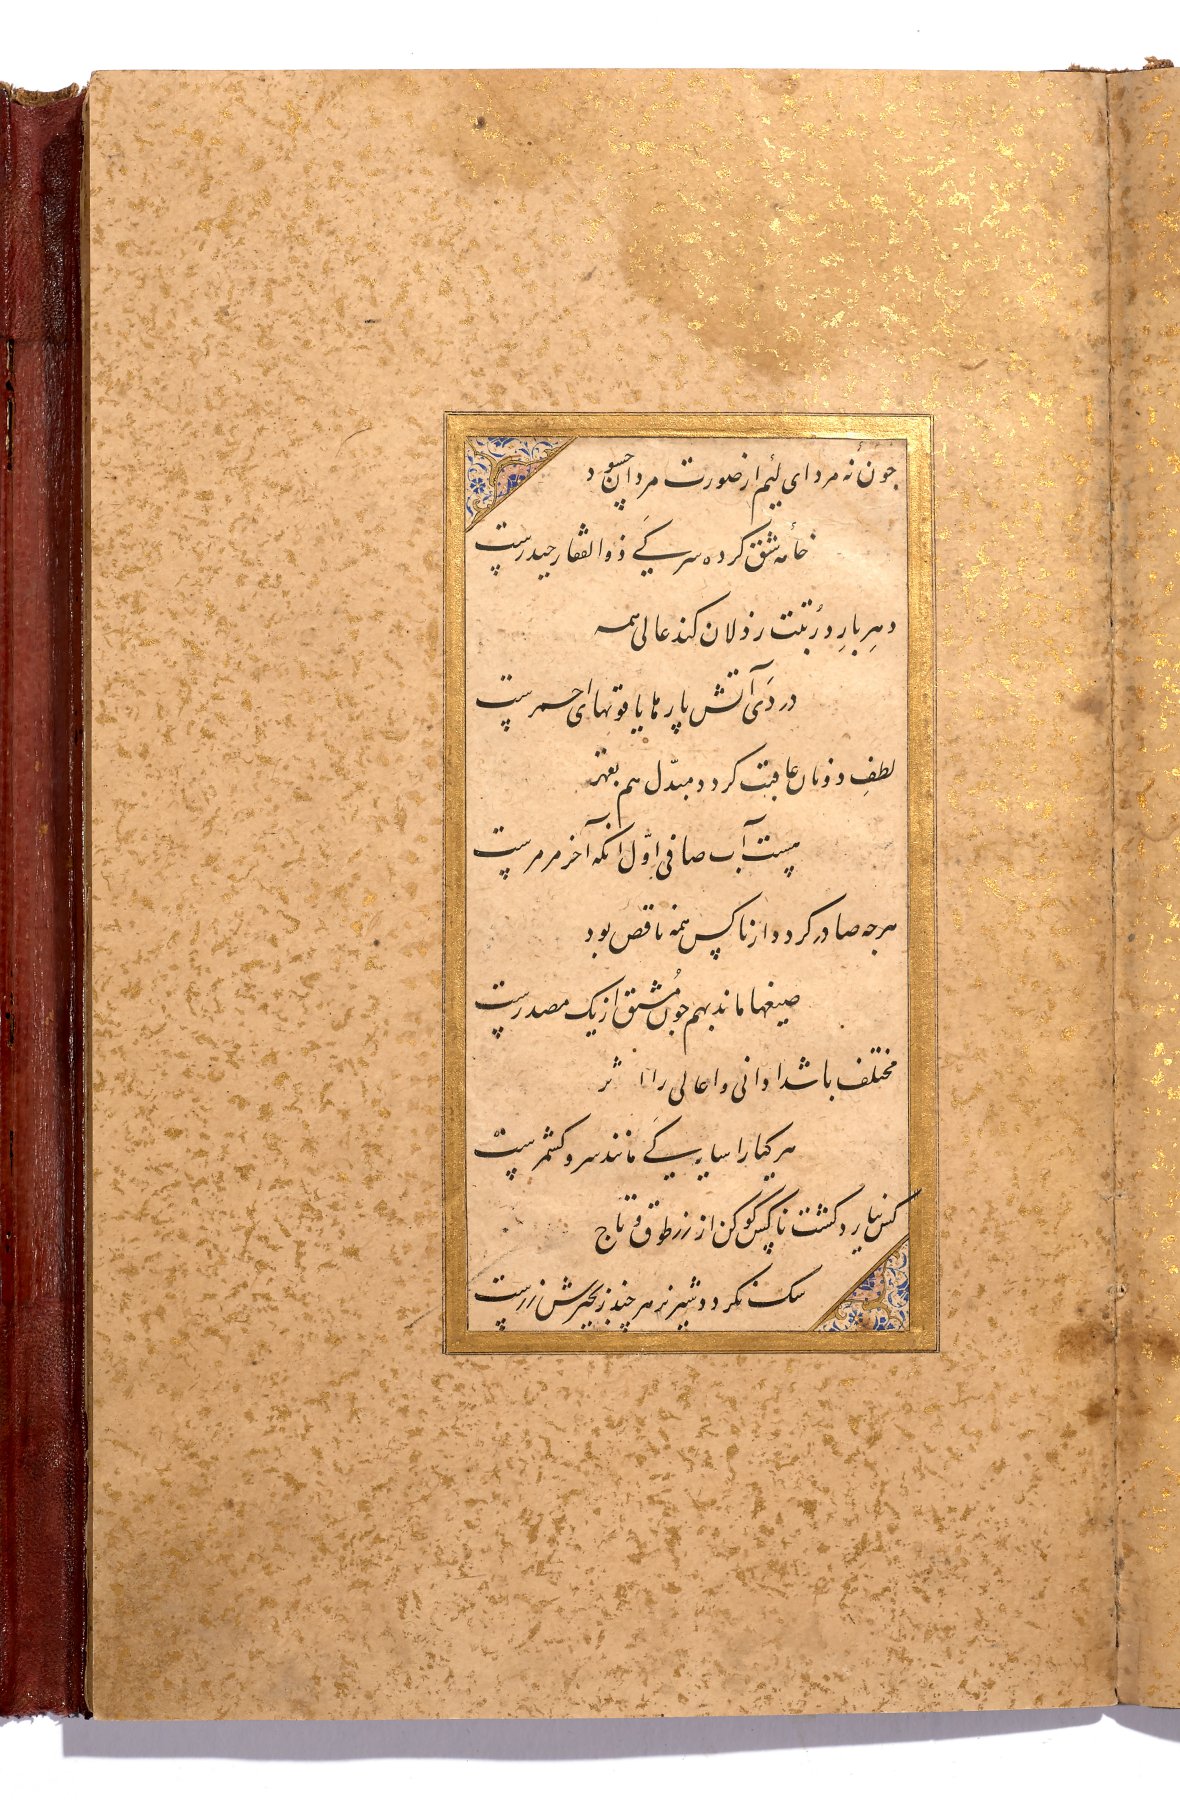 چون نه مرد ای لئیم از صورت مردان چسود
خامه شق کرده سر کی ذوالفقار حیدرست
دهر بار در تبت رذلان کند عالی همه
در دی آتش پارها یاقوتهای احمرست
لطف دونان عاقبت کردد مبدل هم بقهر
هست آب صافی اول انکه آخر مرمرست
هرچه صادر کردد از ناکس همه ناقص بود
صیغها ماند بهم چون مشتق از یک مصدرست
مختلف باشد ادانی و اعالی را اثر
هر کیا را سایه کی مانند سرو کشمرست
کس نیارد کشت ناکس کو کن از زر طوق و تاج
سک نکردد شیر نر هر چند زنجیرش زرست